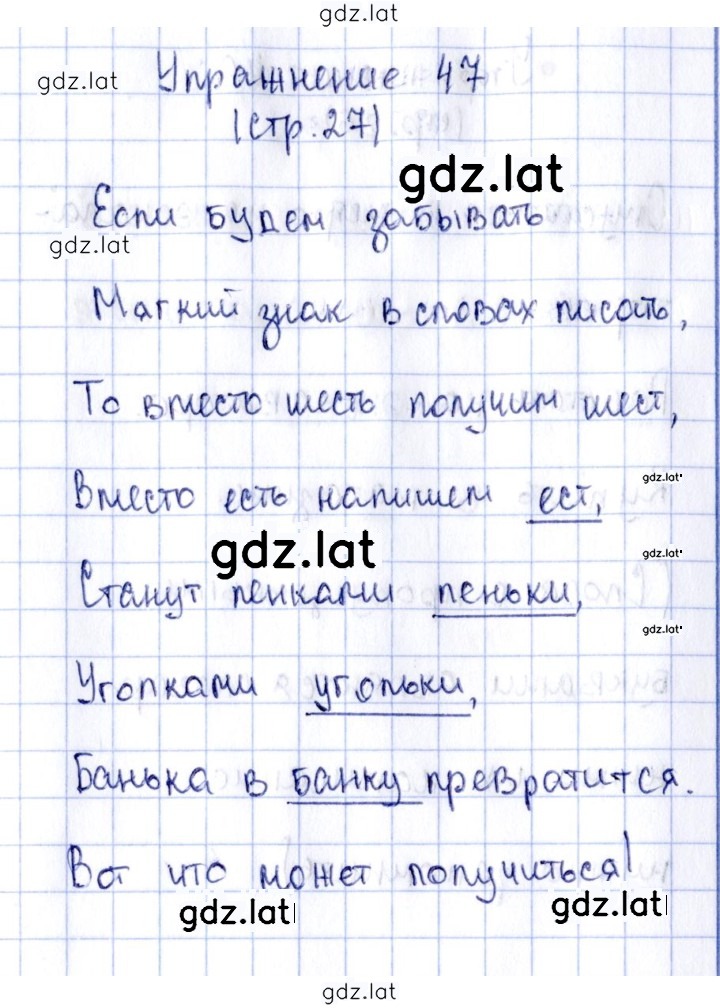 gdz.lat
gdz.lat
Упражнение 47
(стр. 27)
gdz.lat
Если будем забывать
gdz.lat
Мягкий знак в словах писать,
То вместо шесть получим шест,
gdz.lat
Вместо есть напишем ест,
gdz.lat
gdz.lat
Станут пенками пеньки,
gdz.lat
Уголками угольки,
Банька в банку превратится.
Вот что может получиться!
gdz.lat
gdz.lat
gdz.lat